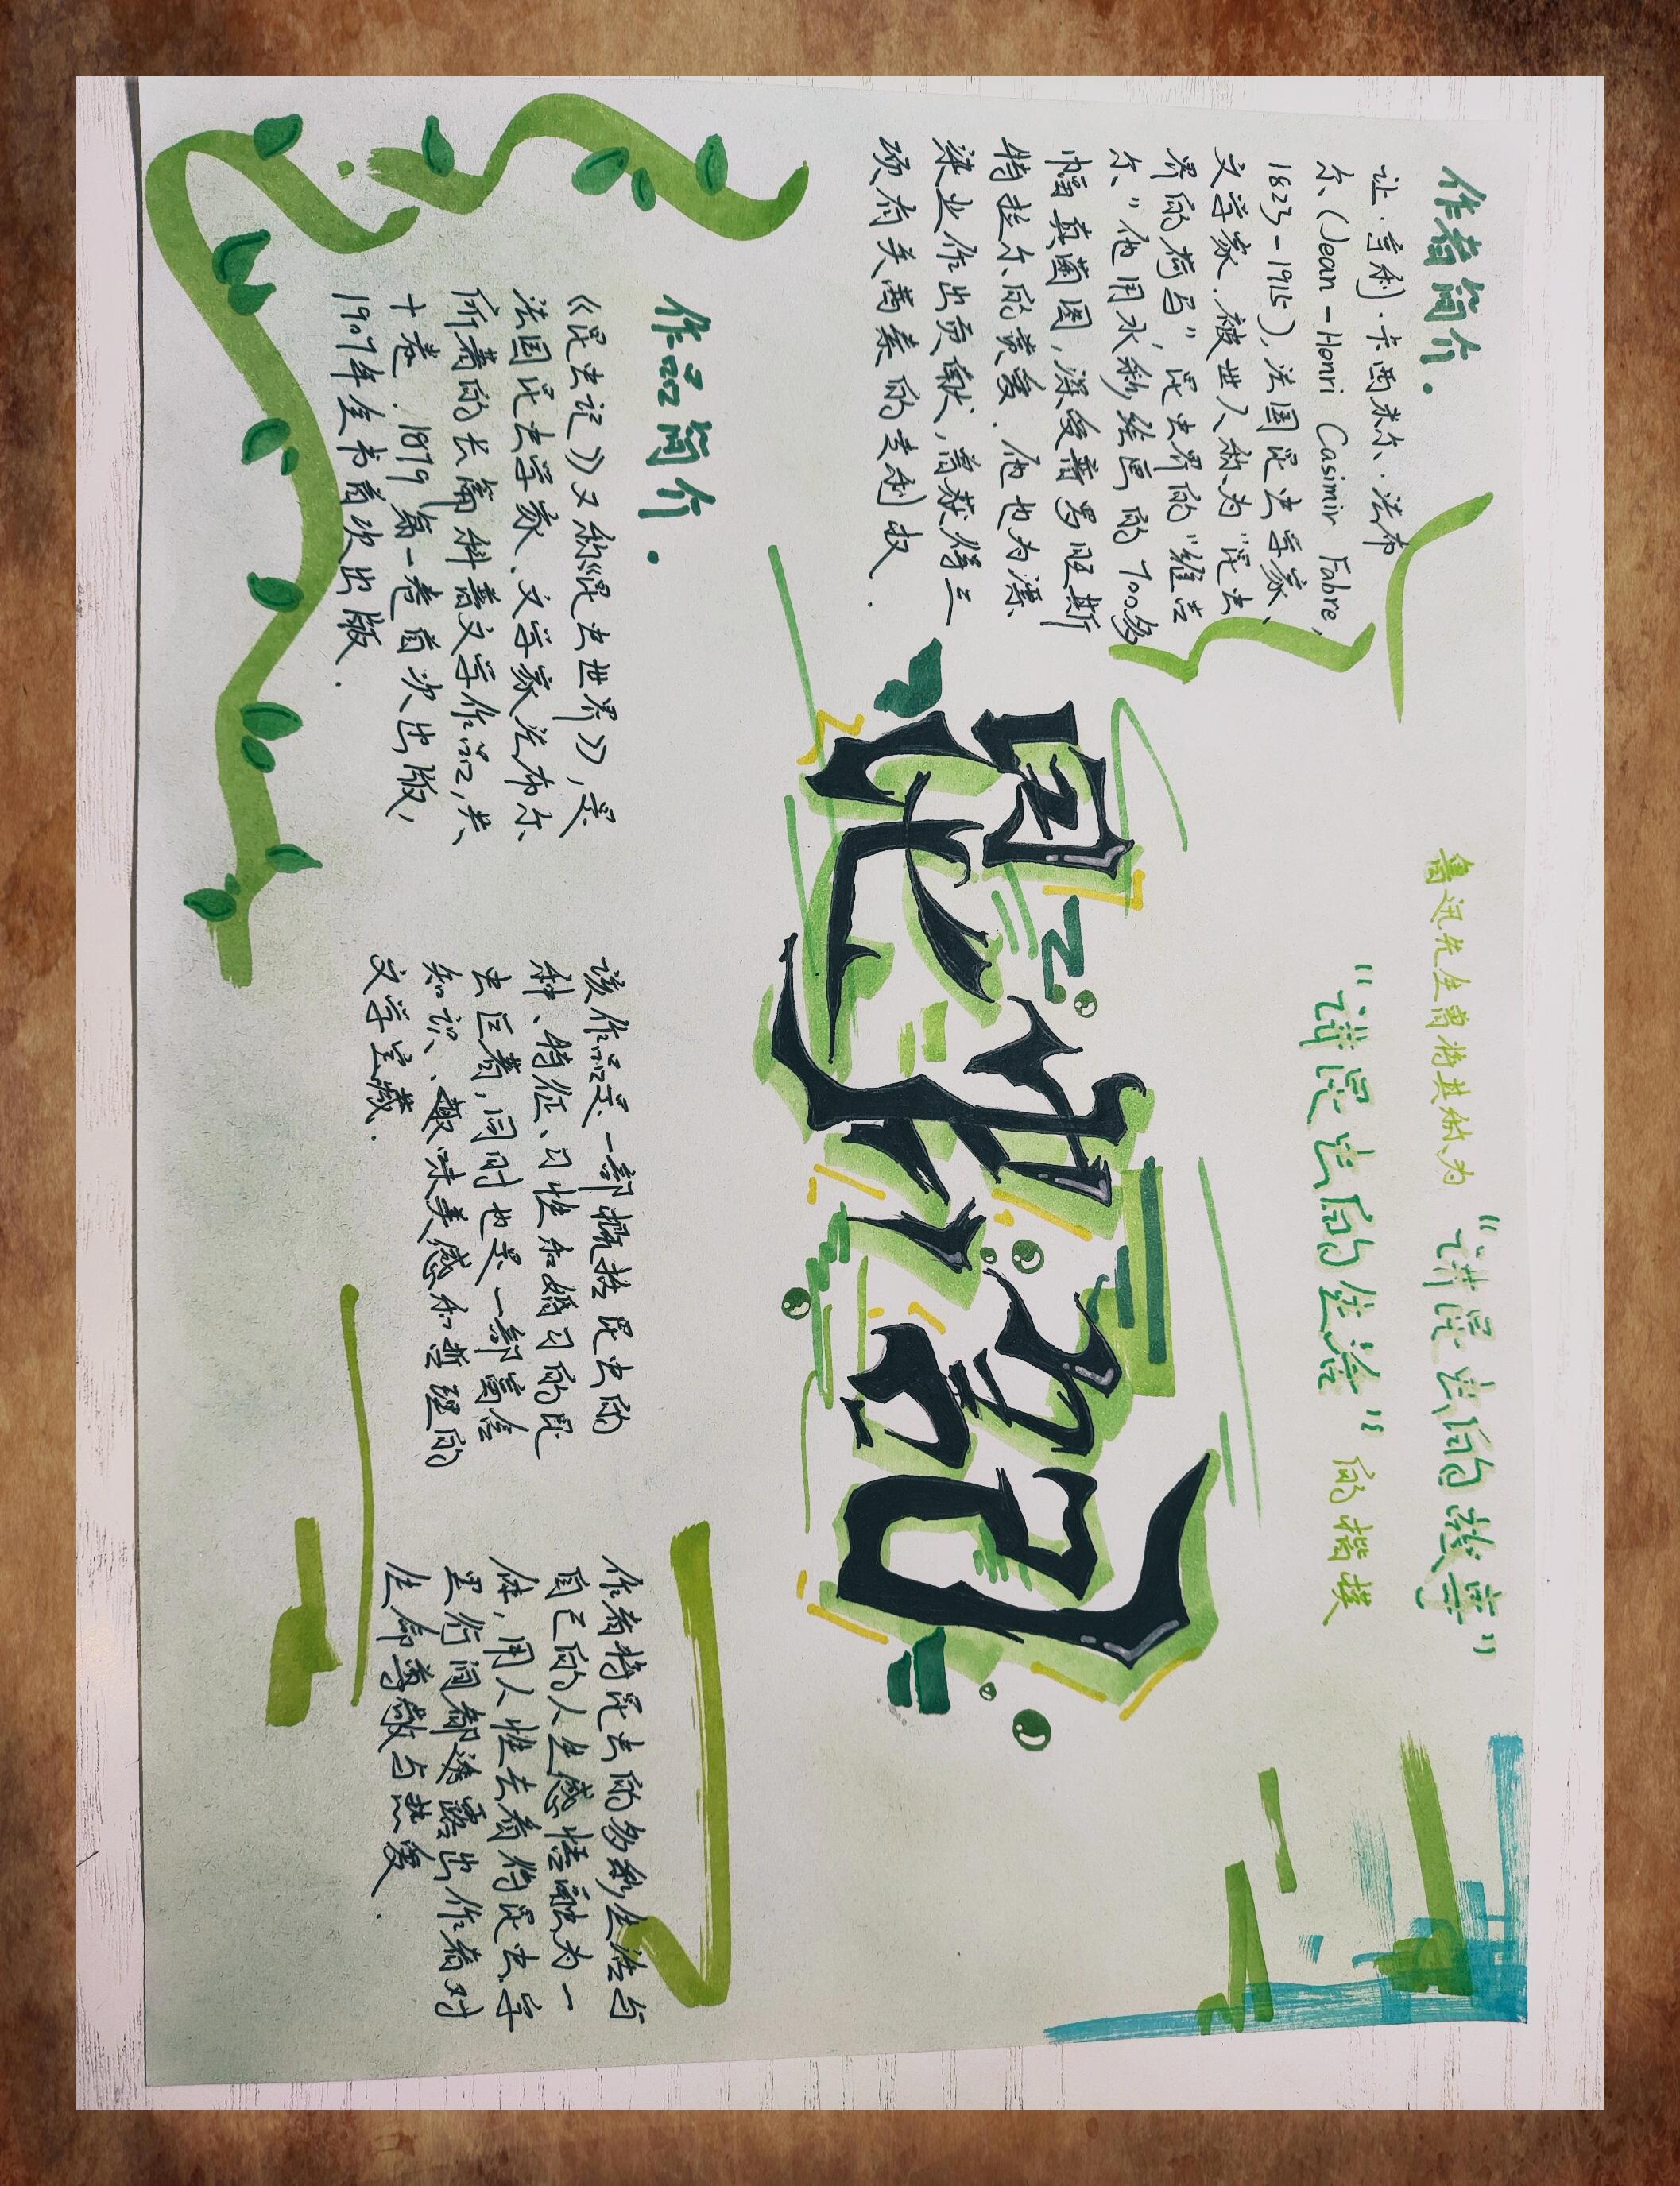 作者简介.
让·亨利·卡西米尔·法布
尔(Jean-Henri Casimir Fabre,
1823-1915),法国昆虫学家、
文学家.被世人称为“昆虫
界的荷马”昆虫界的“维吉
尔.”他用水彩绘画的700多
幅真菌图,深受普罗旺斯
特拉尔的赏爱.他也为漂
染业作出贡献,曾获得三
项有关茜素的专利权.
鲁迅先生曾将其称为“讲昆虫的故事”
“讲昆虫的生活”的楷模
昆虫记
作品简介.
《昆虫记》又称《昆虫世界》,是
法国昆虫学家、文学家法布尔
所著的长篇科普文学作品,共
十卷.1879第一卷首次出版,
1907年全书首次出版.
该作品是一部概括昆虫的
种、特征、习性和婚习的昆
虫巨著,同时也是一部富含
知识、趣味美感和哲理的
文学宝藏.
作者将昆虫的多彩生活与
自己的人生感悟融为一
体,用人性去看待昆虫.字
里行间都透露出作者对
生命尊敬与热爱.